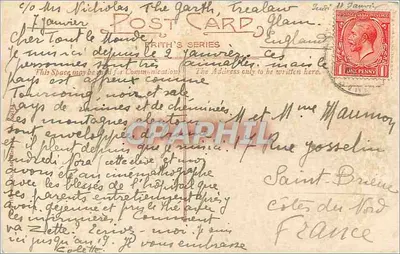 c/o Mrs Nicholas, The Garth, Trealaw
7 Janvier
Glam.
England
POST CARD
FRITH'S SERIES
This Space may be used for Communications
The Address only to be written here.
Cher Tout le Monde
Je suis ici depuis le 2 Janvier, ces
personnes sont très aimables mais le
pays est affreux comme
Tourcoing noir et sale
pays de mines et de cheminées
les montagnes
sont enveloppées de
et il pleut depuis que je suis ici
Vendredi Nora cette élève et moi
avons été au cinématographe
avec les blessés de l'hôpital que
ses parents entretiennent après y
avoir déjeuné et pris le thé avec
les infirmières! Comment
va Zette? Ecrivez-moi. Je suis
ici jusqu'au 17. Je vous embrasse
Colette
M et Mme Maumon
7 Rue Josselin
Saint-Brieuc
Côtes du Nord
France
POSTAGE
ONE PENNY
CPAPHIL